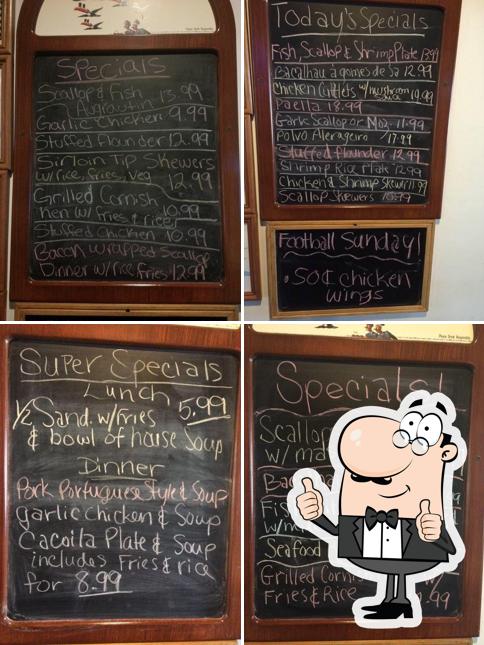 Specials
Scallop & Fish
Augrautin 13.99
Garlic Chicken 9.99
Stuffed Flounder 12.99
Sirloin Tip Skewers
w/rice, fries, veg
12.99
Grilled Cornish
hen w/ fries & rice 10.99
Stuffed Chicken 10.99
Bacon wrapped Scallop
Dinner w/rice fries 12.99
Today's Specials
Fish, Scallop & Shrimp Plate 13.99
Bacalhau a gomes de Sa 12.99
Chicken Cutlets w/mushroom
sauce 10.99
Paella 18.99
Garlic Scallop or Moz. 11.99
Polvo Alentejeiro 17.99
Stuffed flounder 12.99
Shrimp Rice Plate 12.99
Chicken & Shrimp Skewer 11.99
Scallop Skewers 10.99
Football Sunday!
.50¢ chicken
wings
Super Specials
Lunch
1/2 Sand. w/fries 5.99
& bowl of house Soup
Dinner
Pork Portuguese Style & Soup
garlic chicken & Soup
Cacoila Plate & Soup
includes Fries & rice
for 8.99
Specials!
Scallop
w/
Fis
Seafood
Grilled Cornis w/
Fries & Rice .99